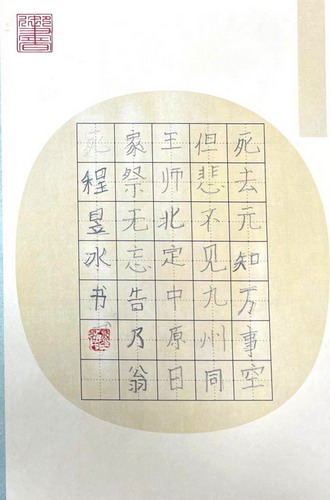 死去元知万事空
但悲不见九州同
王师北定中原日
家祭无忘告乃翁
程昱冰书